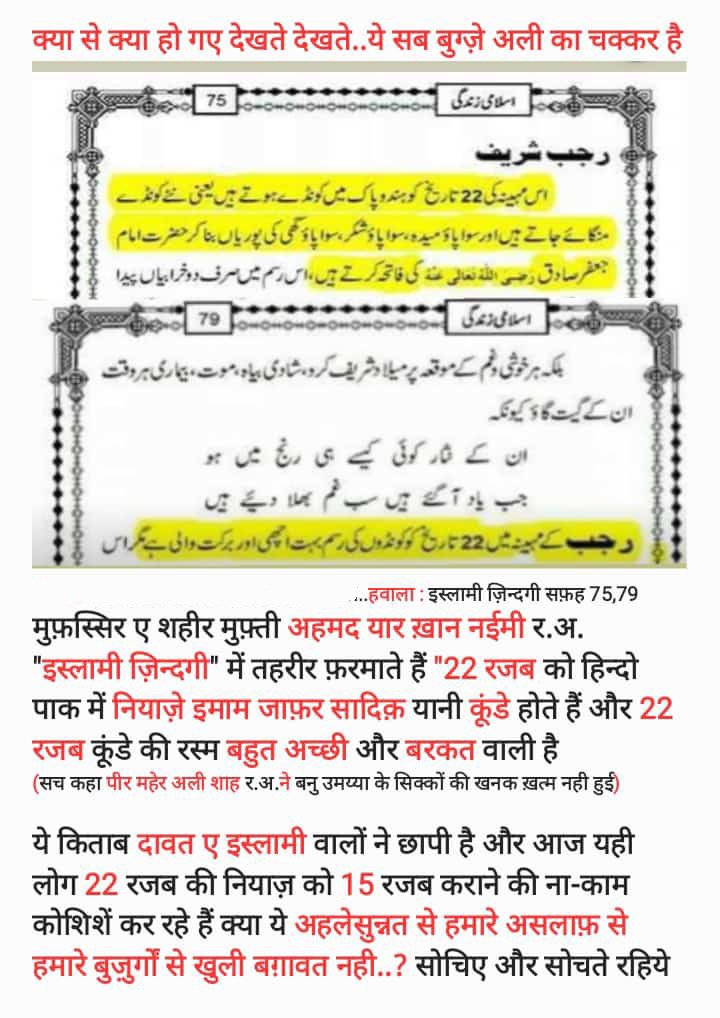 क्या से क्या हो गए देखते देखते..ये सब बुग्ज़े अली का चक्कर है
75
اسلامی زندگی
رجب شریف
اس مہینہ کی 22 تاریخ کو ہندوپاک میں کونڈے ہوتے ہیں یعنی نئے کونڈے
منگائے جاتے ہیں اور سوا پاؤ میدہ، سوا پاؤ شکر، سوا پاؤ گھی کی پوریاں بنا کر حضرت امام
جعفر صادق رضی اللہ تعالی عنہ کی فاتحہ کرتے ہیں، اس رسم میں صرف دو خرابیاں پیدا
79
اسلامی زندگی
بلکہ ہر خوشی و غم کے موقعہ پر میلاد شریف کرو، شادی بیاہ، موت، بیماری ہر وقت
ان کے گیت گاؤ کیونکہ
ان کے نثار کوئی کیسے ہی رنج میں ہو
جب یاد آگئے ہیں سب غم بھلا دیئے ہیں
رجب کے مہینہ میں 22 تاریخ کو کونڈوں کی رسم بہت اچھی اور برکت والی ہے مگر اس
...हवाला : इस्लामी ज़िन्दगी सफ़ह 75,79
मुफ़स्सिर ए शहीर मुफ़्ती अहमद यार ख़ान नईमी र.अ.
"इस्लामी ज़िन्दगी" में तहरीर फ़रमाते हैं "22 रजब को हिन्दो
पाक में नियाज़े इमाम जाफ़र सादिक़ यानी कूंडे होते हैं और 22
रजब कूंडे की रस्म बहुत अच्छी और बरकत वाली है
(सच कहा पीर महेर अली शाह र.अ.ने बनु उमय्या के सिक्कों की खनक ख़त्म नही हुई)
ये किताब दावत ए इस्लामी वालों ने छापी है और आज यही
लोग 22 रजब की नियाज़ को 15 रजब कराने की ना-काम
कोशिशें कर रहे हैं क्या ये अहलेसुन्नत से हमारे असलाफ़ से
हमारे बुज़ुर्गों से खुली बग़ावत नही..? सोचिए और सोचते रहिये